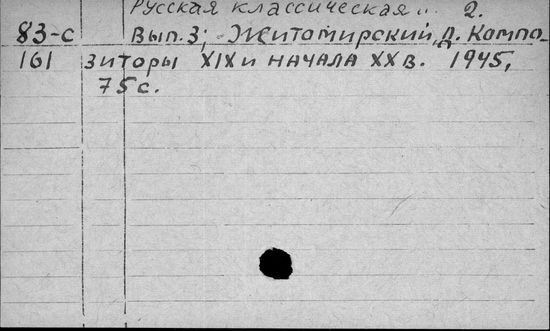 Русская классическая... 2.
83-с Вып.3; Житомирский, Д. Компо-
161 зиторы XIX и начала XX в. 1945,
75 с.